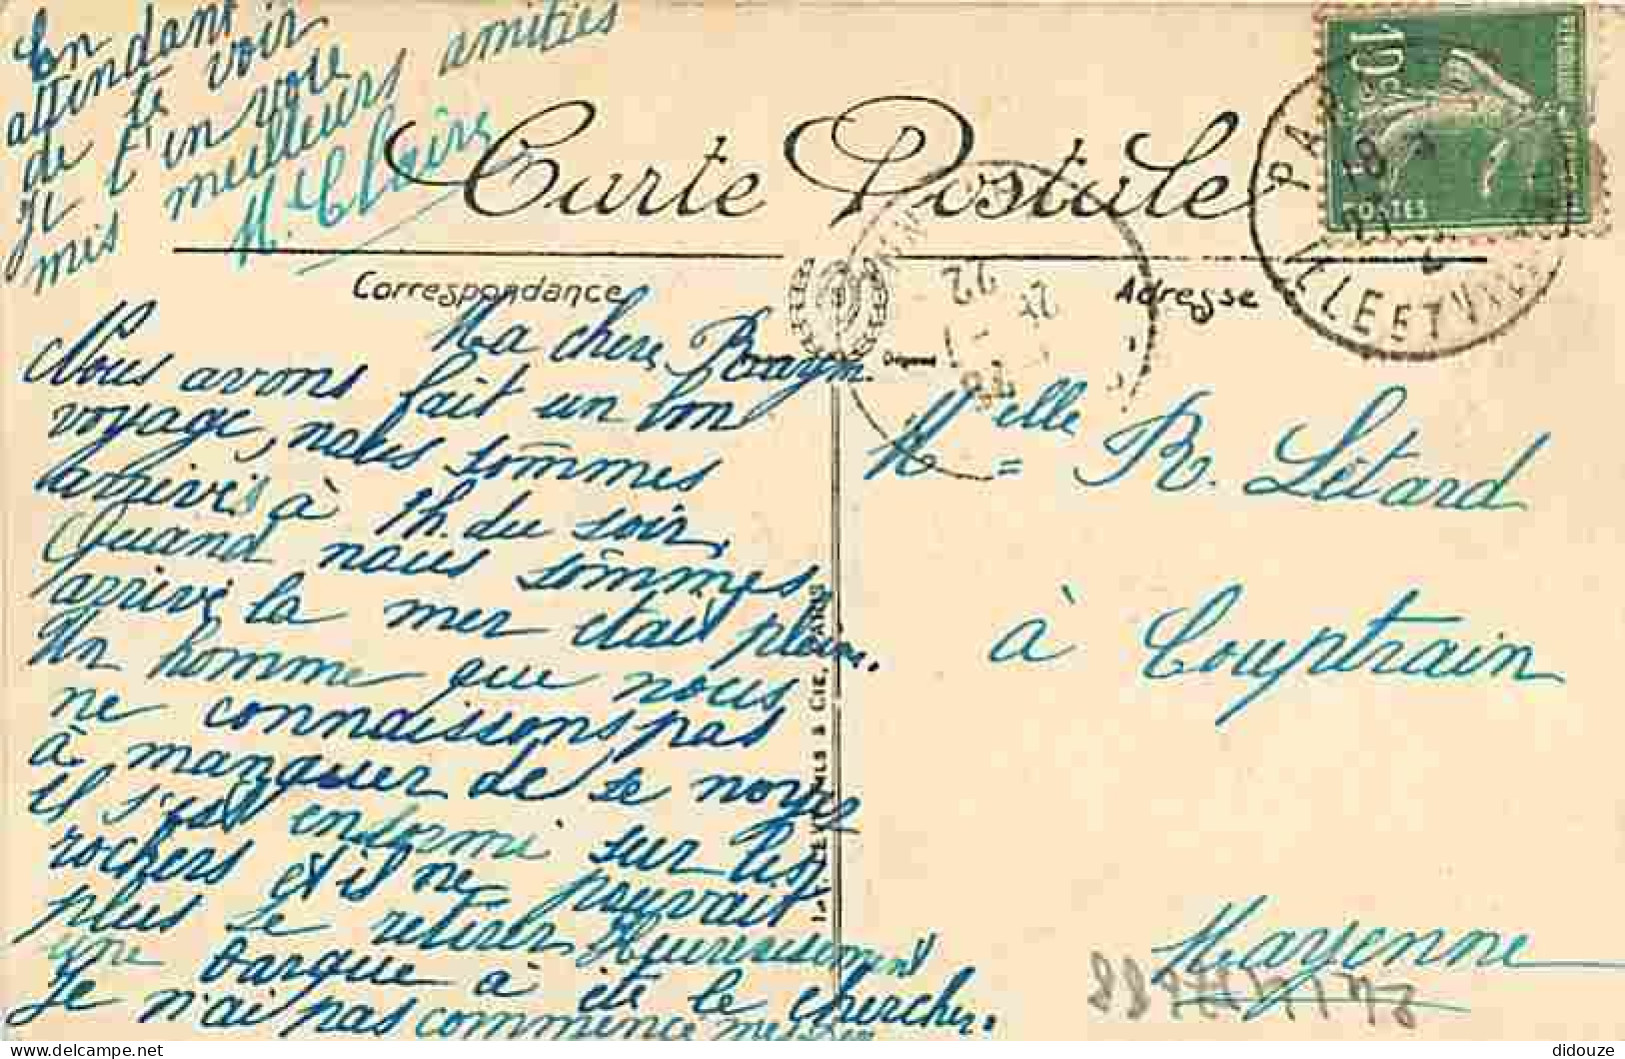 En
attendant
de te voir
Je t'envoie
mes meilleurs amities
M. Claire
Carte Postale
Correspondance
Adresse
Déposé
10c
POSTES
PARIS
18
VILLEETTE
22
18
Ma chere Raym.
Nous avons fait un bon
voyage, nous sommes
arrivés à 7h. du soir.
Quand nous sommes
arrivé la mer était plein.
Un homme que nous
ne connaissons pas
à manquer de se noyer
Il s'est endormi sur les
rochers et il ne pouvait
plus se retirer Heureusement
une barque à été le chercher.
Je n'ai pas commence mes
Melle = R. Létard
à Couptrain
Mayenne
& CIE, PARIS
didouze
delcampe.net